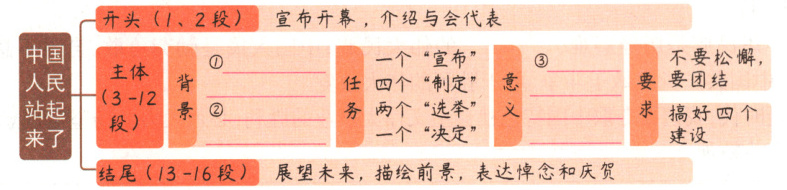 中国
人民
站起
来了
开头（1、2段）
宣布开幕，介绍与会代表
主体
（3-12
段）
背
景
①
②
任
务
一个“宣布”
四个“制定”
两个“选举”
一个“决定”
意
义
③
要
求
不要松懈，
要团结
搞好四个
建设
结尾（13-16段）
展望未来，描绘前景，表达悼念和庆贺